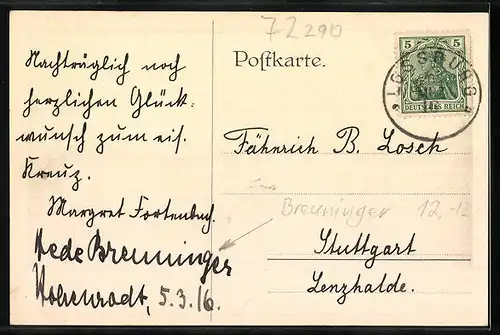 72290
Postkarte.
5 5
DEUTSCHES REICH
LOSSBURG
Nachträglich noch
herzlichen Glück-
wunsch zum eis.
Kreuz.
Margret Fortenbach.
Hede Breuninger
Hohenrodt, 5.3.16.
Fähnrich B. Losch
Breuninger 12,-
Stuttgart
Lenzhalde.